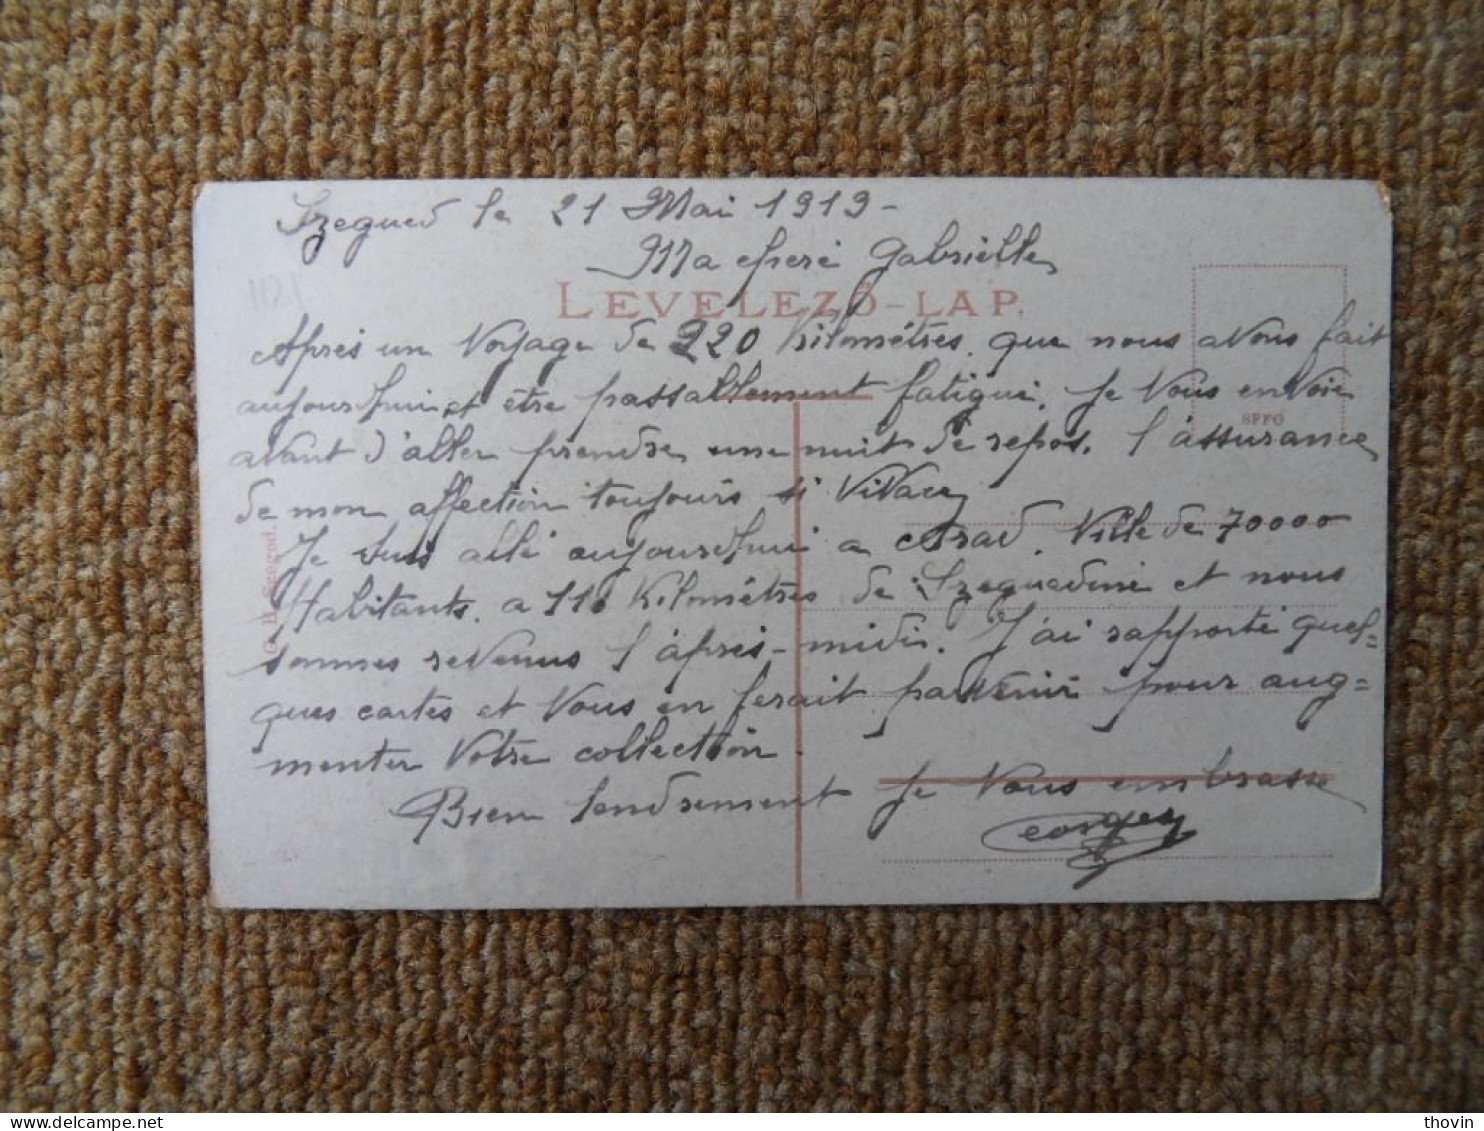 Szegued le 21 Mai 1919-
Ma chere Gabrielle
LEVELEZŐ-LAP.
Après un Voyage de 220 Kilométres que nous avons fait
aujourd'hui et être passablement fatigué, je Vous envoie
avant d'aller prendre une nuit de repos. l'assurance
de mon affection toujours si Vivace
Je suis allé aujourd'hui a Arad. Ville de 70000
Habitants. a 110 Kilométres de Szeguedine et nous
sommes revenus l'après-midi. J'ai rapporté quel-
ques cartes et Vous en ferait parvenir pour aug-
menter Votre collection.
Bien tendrement je Vous embrasse
Georges
thovin